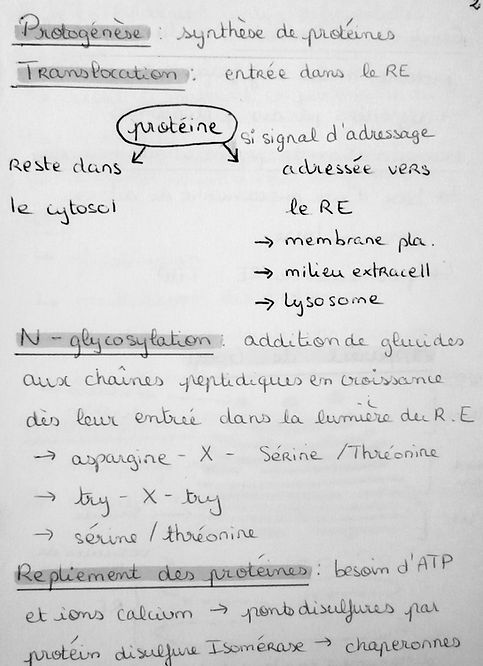 2
Protogénèse : synthèse de protéines
Translocation : entrée dans le RE
protéine
si signal d'adressage
Reste dans
le cytosol
adressée vers
le RE
→ membrane pla.
→ milieu extracell
→ lysosome
N - glycosylation : addition de glucides
aux chaînes peptidiques en croissance
dès leur entrée dans la lumière du R.E
→ aspargine - X - Sérine / Thréonine
→ try - X - try
→ sérine / thréonine
Repliement des protéines : besoin d'ATP
et ions calcium → ponts disulfures par
protéin disulfure Isomérase → chaperonnes